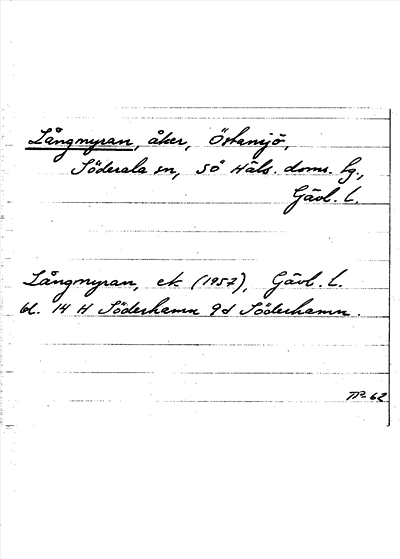 Långmyran, åker, Östansjö,
Söderala sn, SÖ Häls. doms. hg.,
Gävl. l.
Långmyran, ek (1957), Gävl. l.
bl. 14 H Söderhamn 9d Söderhamn.
62